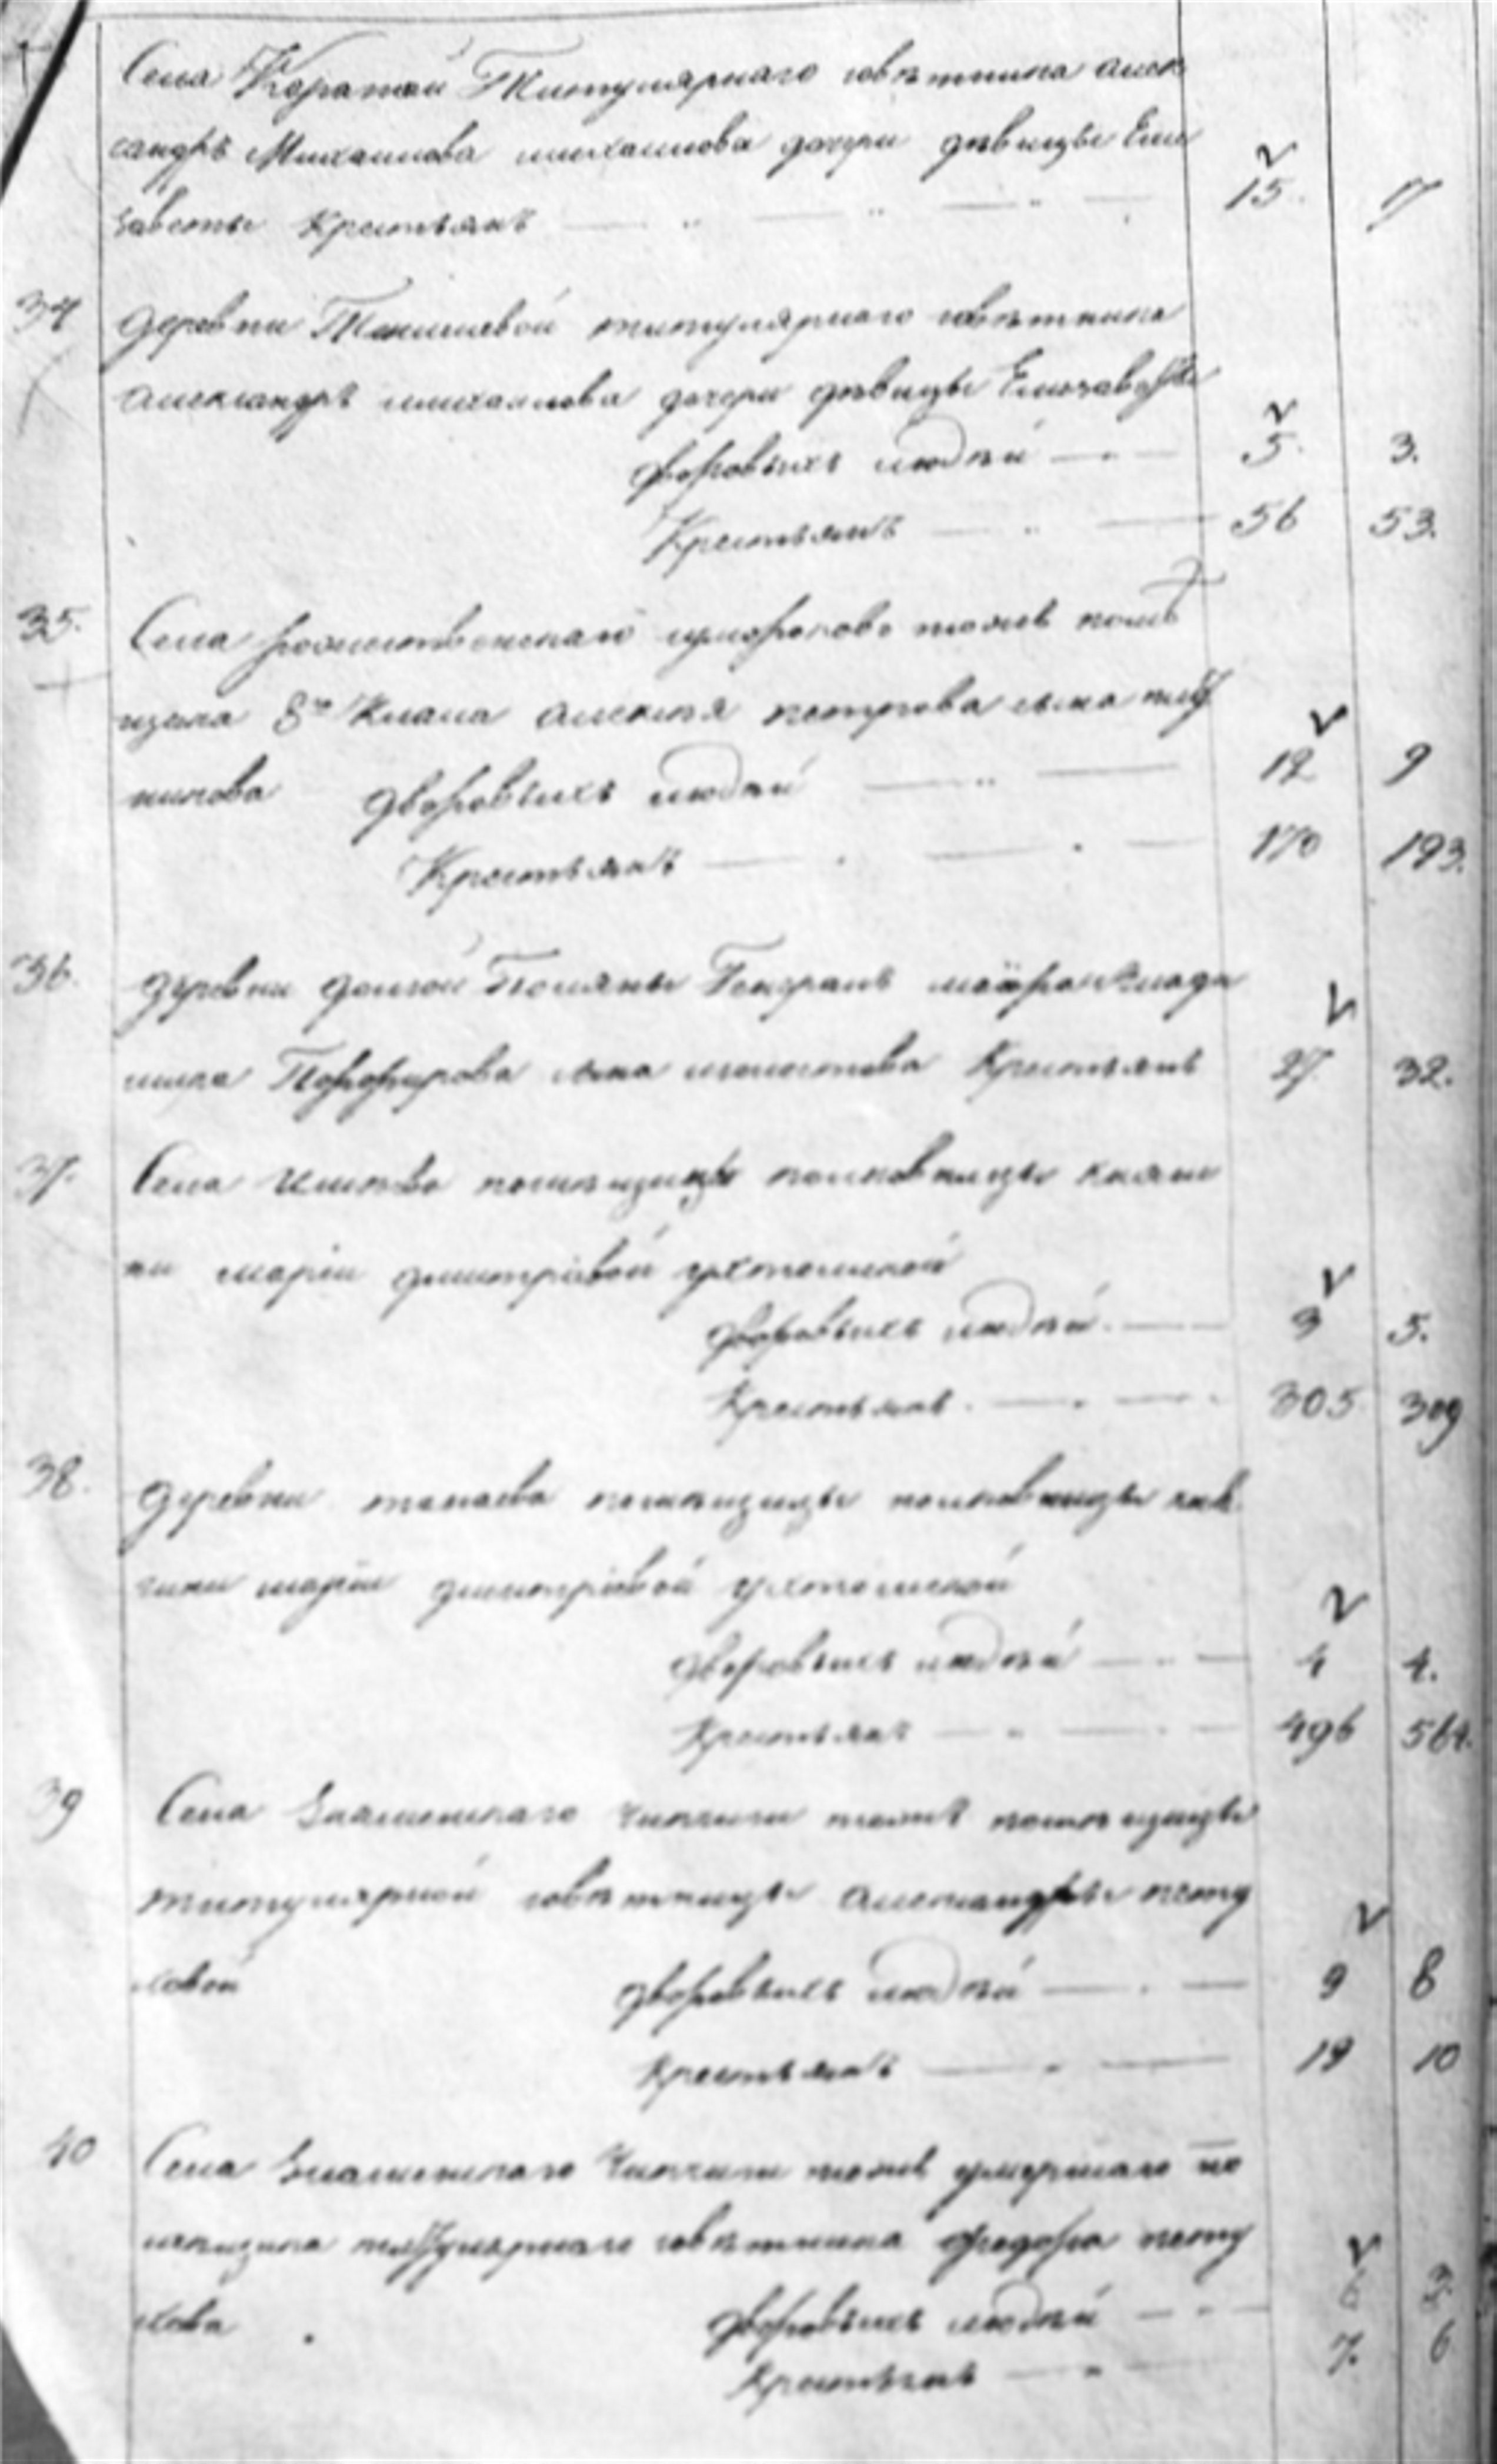 Села Каратай Титулярнаго советника Алек
сандръ Михаилова михаилова дочери девицы Ели
заветы Крестьянъ 15. 17
34 деревни титулярнаго советника
александръ михаилова дочери девицы Елисаветы
дворовыхъ людей 5. 3.
Крестьянъ 56 53.
35. Села рожественскаго тожъ поме
щика 8го Класа алексея петрова сына
дворовыхъ людей 12 9
Крестьянъ 170 193.
36. деревни долгой Поляны Генералъ маiора Влади
мира Порфирова сына молостова Крестьянъ 27 32.
37. Села помещицы полковницы княги
ни марiи дмитрiевой ухтомской
дворовыхъ людей 3 5.
Крестьянъ 305 309
38. деревни помещицы полковницы кня
гини марiи дмитрiевой ухтомской
дворовыхъ людей 4 4.
Крестьянъ 496 564.
39 Села Знаменскаго тожъ помещицы
титулярной советницы александры пету
ховой дворовыхъ людей 9 8
Крестьянъ 19 10
40 Села Знаменскаго тожъ умершаго по
мещика титулярнаго советника федора пету
хова дворовыхъ людей 3
Крестьянъ 7. 6